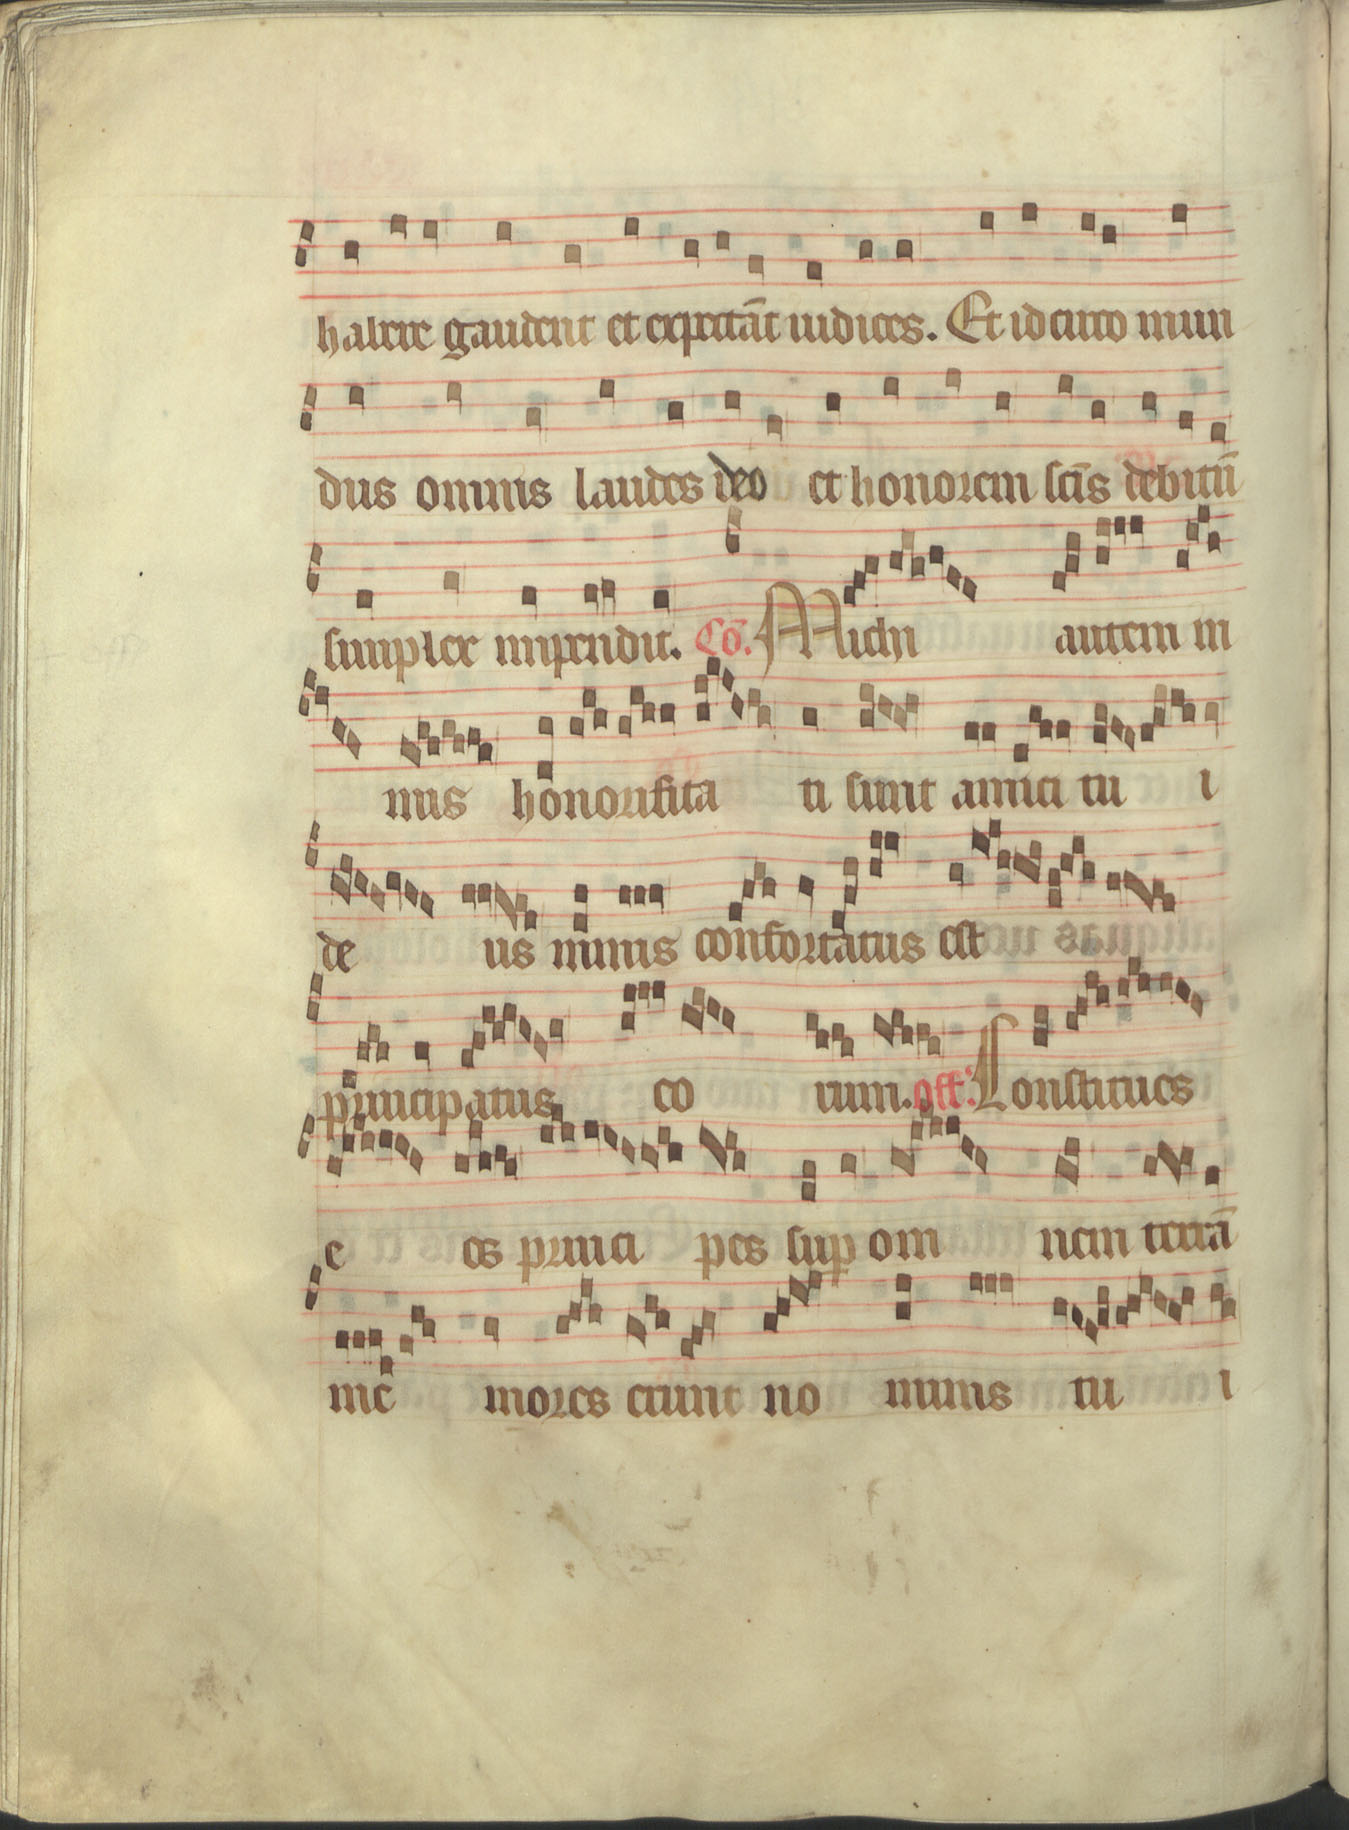 habere gaudent et expectāt iudices. Et idcirco mun
dus omnis laudes deo et honorem sc̄is debitū
simplex impendit. Cō. Michi autem in
mis honorifica ti sunt amici tu i
de us nimis confortatus est
principatus eo rum. off. Constitues
e os princi pes sup om nem terrā
me mores erunt no minis tu i